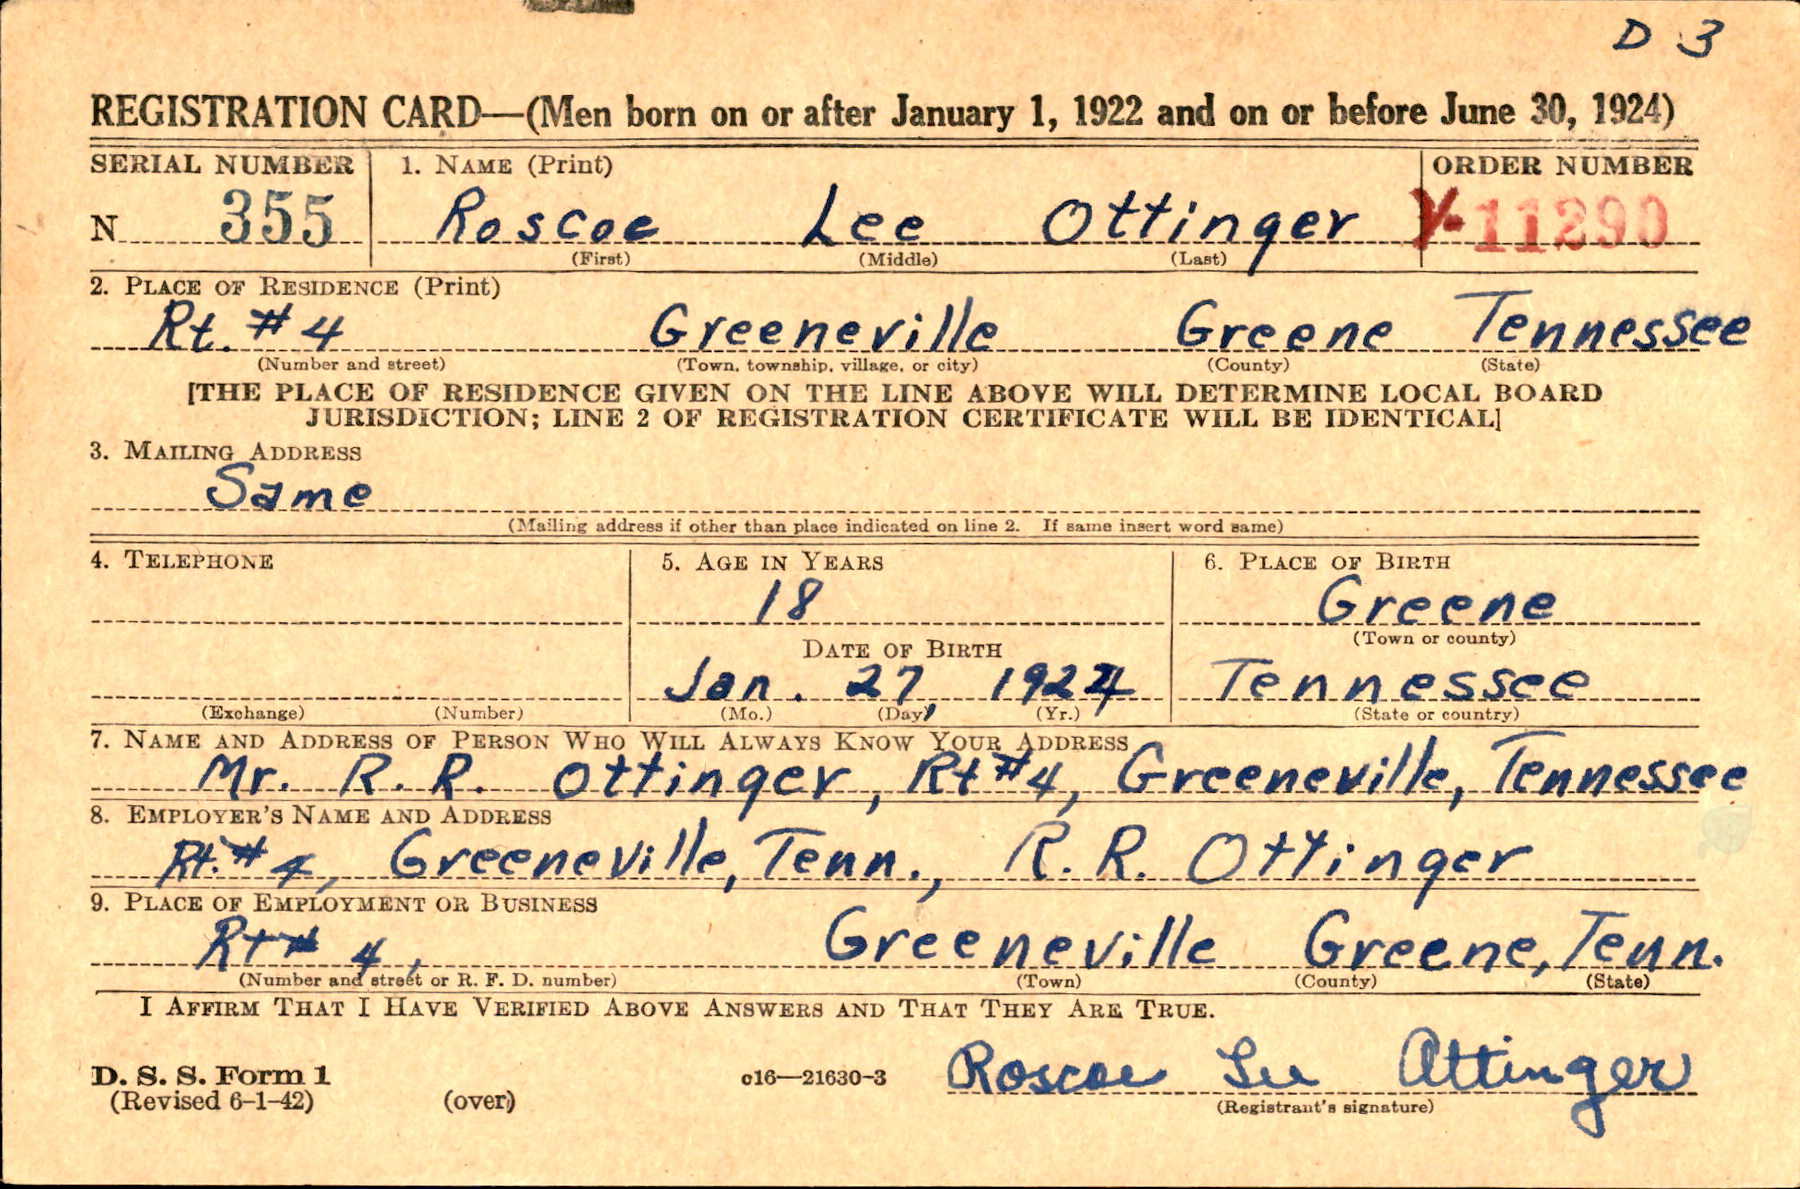 D 3
REGISTRATION CARD—(Men born on or after January 1, 1922 and on or before June 30, 1924)
SERIAL NUMBER 1. NAME (Print) ORDER NUMBER
N 355 Roscoe Lee Ottinger V-11290
(First) (Middle) (Last)
2. PLACE OF RESIDENCE (Print)
Rt. #4 Greeneville Greene Tennessee
(Number and street) (Town, township, village, or city) (County) (State)
[THE PLACE OF RESIDENCE GIVEN ON THE LINE ABOVE WILL DETERMINE LOCAL BOARD
JURISDICTION; LINE 2 OF REGISTRATION CERTIFICATE WILL BE IDENTICAL]
3. MAILING ADDRESS
Same
(Mailing address if other than place indicated on line 2. If same insert word same)
4. TELEPHONE 5. AGE IN YEARS 6. PLACE OF BIRTH
18 Greene
(Town or county)
DATE OF BIRTH
Jan. 27, 1924 Tennessee
(Exchange) (Number) (Mo.) (Day) (Yr.) (State or country)
7. NAME AND ADDRESS OF PERSON WHO WILL ALWAYS KNOW YOUR ADDRESS
Mr. R. R. Ottinger, Rt #4, Greeneville, Tennessee
8. EMPLOYER'S NAME AND ADDRESS
Rt. #4, Greeneville, Tenn., R. R. Ottinger
9. PLACE OF EMPLOYMENT OR BUSINESS
Rt # 4, Greeneville Greene, Tenn.
(Number and street or R. F. D. number) (Town) (County) (State)
I AFFIRM THAT I HAVE VERIFIED ABOVE ANSWERS AND THAT THEY ARE TRUE.
D. S. S. Form 1
(Revised 6-1-42) (over) c16—21630-3 Roscoe Lee Ottinger
(Registrant's signature)